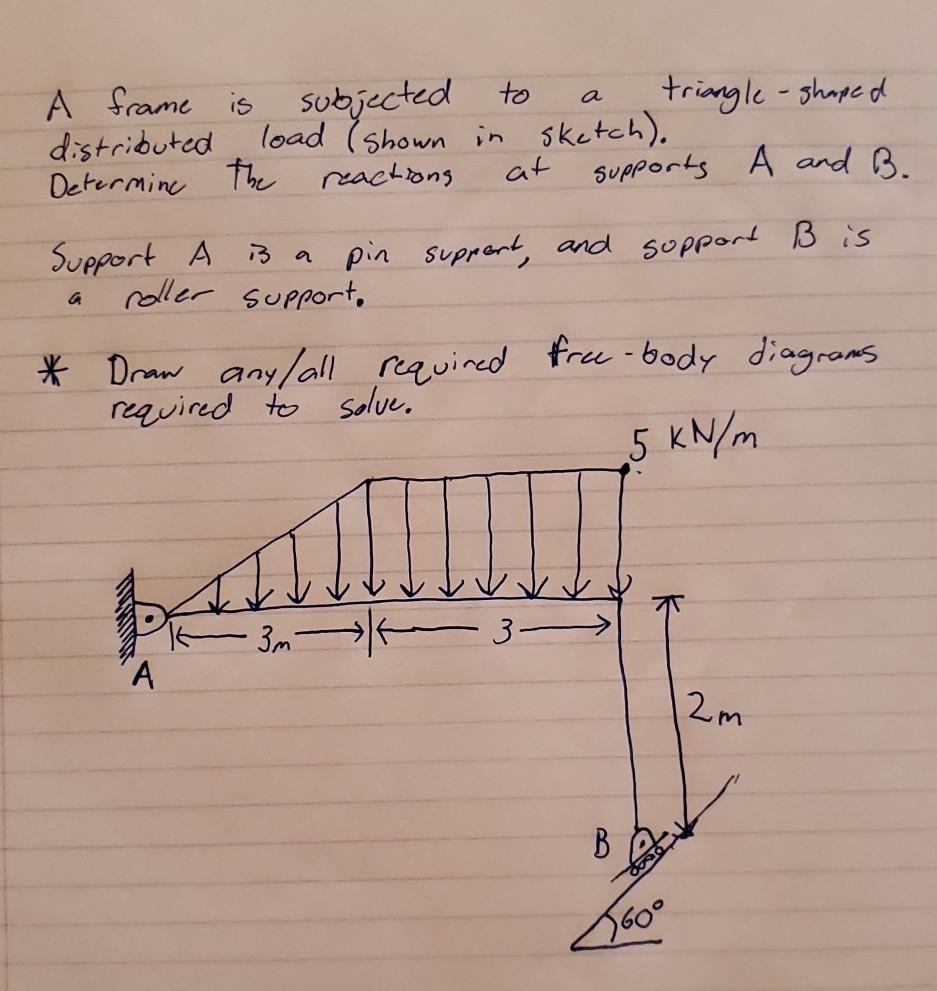 A frame is subjected to a triangle-shaped
distributed load (shown in sketch).
Determine the reactions at supports A and B.
Support A is a pin support, and support B is
a roller support.
* Draw any/all required free-body diagrams
required to solve.
5 KN/m
3m
3
A
2m
B
60°